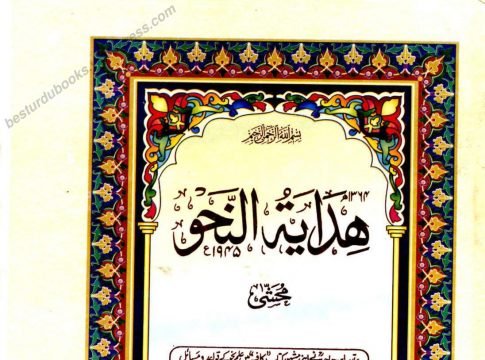 besturdubooks.wordpress.com
بسم الله الرحمن الرحيم
۱۳۶۴ھ
هِدَايَةُ النَّحْو
۱۹۴۵ع
مُحَشّٰی